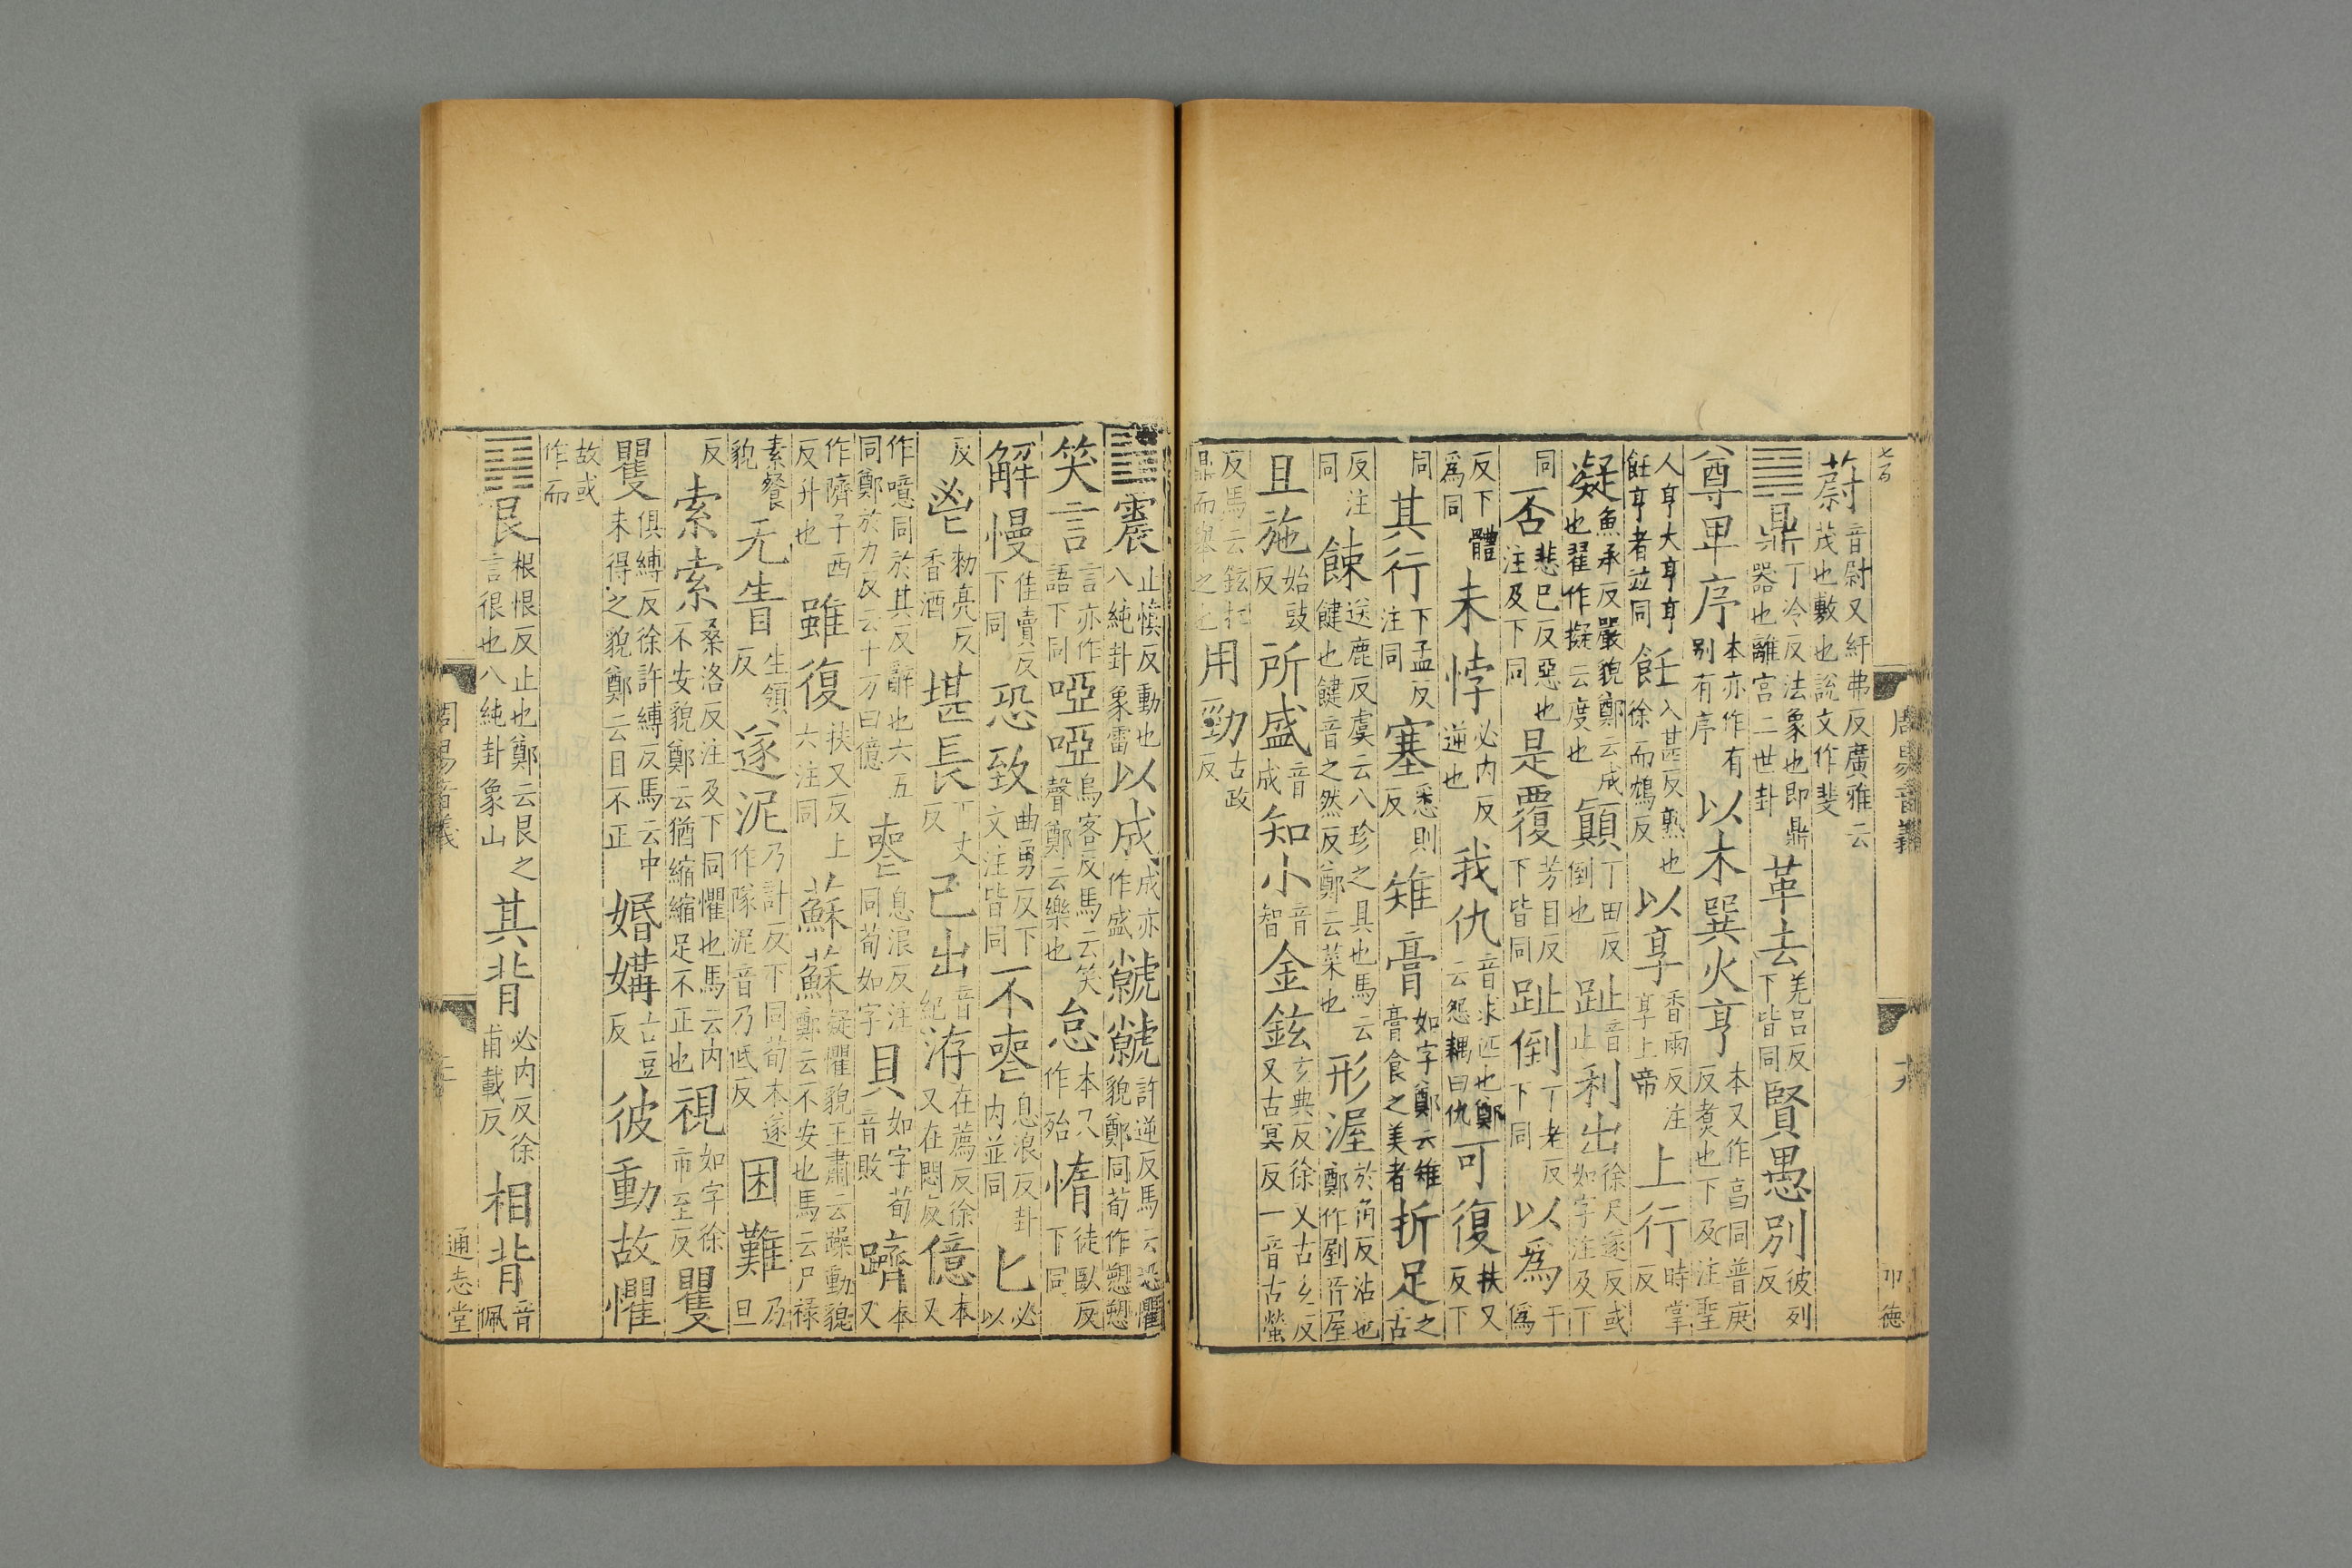 七百
周易音義
九
卬德
蔚音尉又紆弗反廣雅云茂也數也說文作斐
䷱鼎丁冷反法象也即鼎器也離宮二世卦 革去羌呂反下皆同 賢愚別彼列反
尊卑序本亦作有別有序 以木巽火亨本又作亯同普庚反煑也下及注聖
人亨大亨亨飪亨者竝同 飪入甚反熟也徐而鴆反 以享香兩反注享上帝 上行時掌反
凝魚承反嚴貌鄭云成也翟作擬云度也 顚丁田反倒也 趾音止 利出徐尺遂反或如字注及下
同 否悲巳反惡也注及下同 是覆芳目反下皆同 趾倒丁老反下同 以爲于僞
反下爲同 體 未悖必內反逆也 我仇音求匹也鄭云怨耦曰仇 可復扶又反下
同 其行下孟反注同 塞悉則反 雉膏如字鄭云雉膏食之美者 折足之舌
反注同 餗送鹿反虞云八珍之具也馬云鍵也鍵音之然反鄭云菜也 形渥於角反沾也鄭作剭音屋
且施始豉反 所盛音成 知小音智 金鉉玄典反徐又古玄反又古冥反一音古螢
反馬云鉉扛鼎而舉之也 用勁古政反
䷲震止慎反動也八純卦象雷 以成成亦作盛 虩虩許逆反馬云恐懼貌鄭同荀作愬愬
笑言言亦作語下同 啞啞烏客反馬云笑聲鄭云樂也 怠本又作殆 惰徒臥反下同
解慢佳賣反下同 恐致曲勇反下文注皆同 不喪息浪反卦內並同 匕必以
反 鬯勑亮反香酒 堪長丁丈反 己出音紀 洊在薦反徐又在悶反 億本又
作噫同於其反辭也六五同鄭於力反云十万曰億 喪息浪反注同荀如字 貝如字荀音敗 躋本又
作隮子西反升也 雖復扶又反上六注同 蘇蘇疑懼貌王肅云躁動貌鄭云不安也馬云尸祿
素餐貌 无眚生領反 遂泥乃計反下同荀本遂作隊泥音乃低反 困難乃旦
反 索索桑洛反注及下同懼也馬云內不安貌鄭云猶縮縮足不正也 視如字徐市至反 矍
矍俱縛反徐許縛反馬云中未得之貌鄭云目不正 婚媾古豆反 彼動故懼
故或作而
䷳艮根恨反止也鄭云艮之言很也八純卦象山 其背必內反徐甫載反 相背音佩
周易音義
通志堂